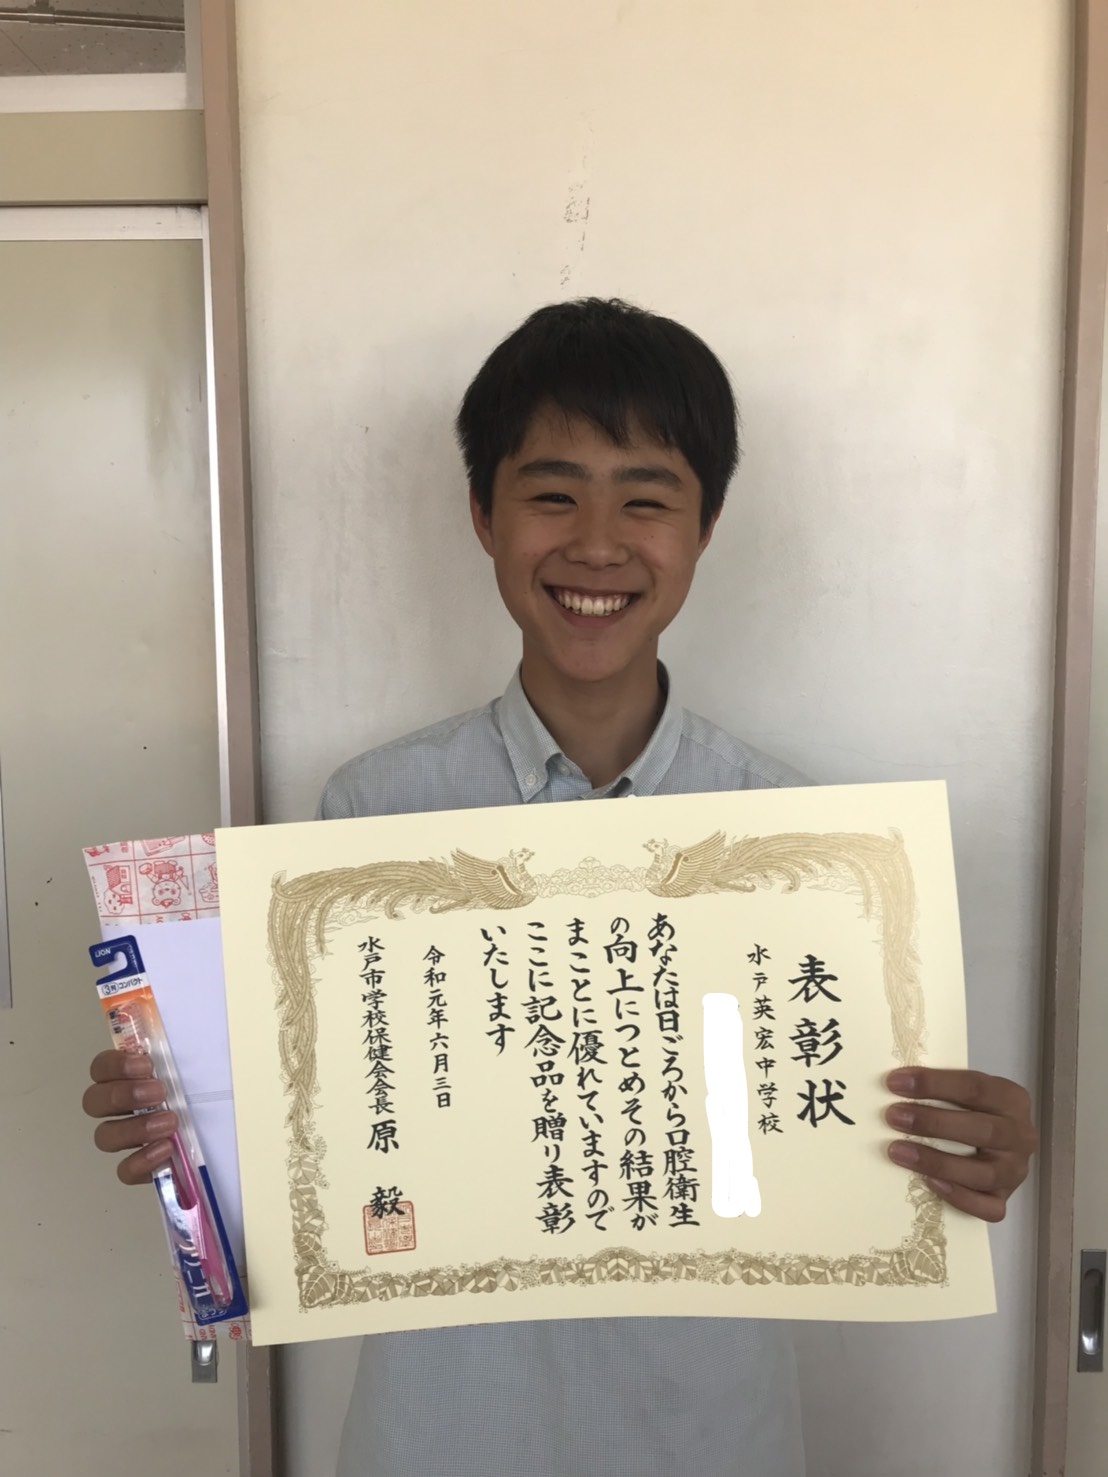 表彰状
水戸英宏中学校
あなたは日ごろから口腔衛生
の向上につとめその結果が
まことに優れていますので
ここに記念品を贈り表彰
いたします
令和元年六月三日
水戸市学校保健会会長 原 毅
LION
コンパクト